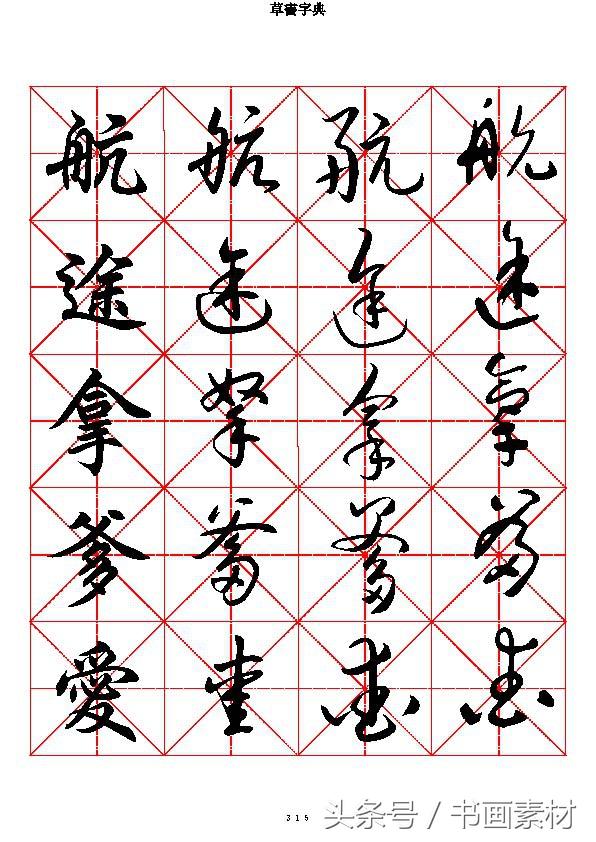 草書字典
航 航 航 航
途 途 途 途
拿 拿 拿 拿
爹 爹 爹 爹
愛 愛 愛 愛
315
头条号 / 书画素材